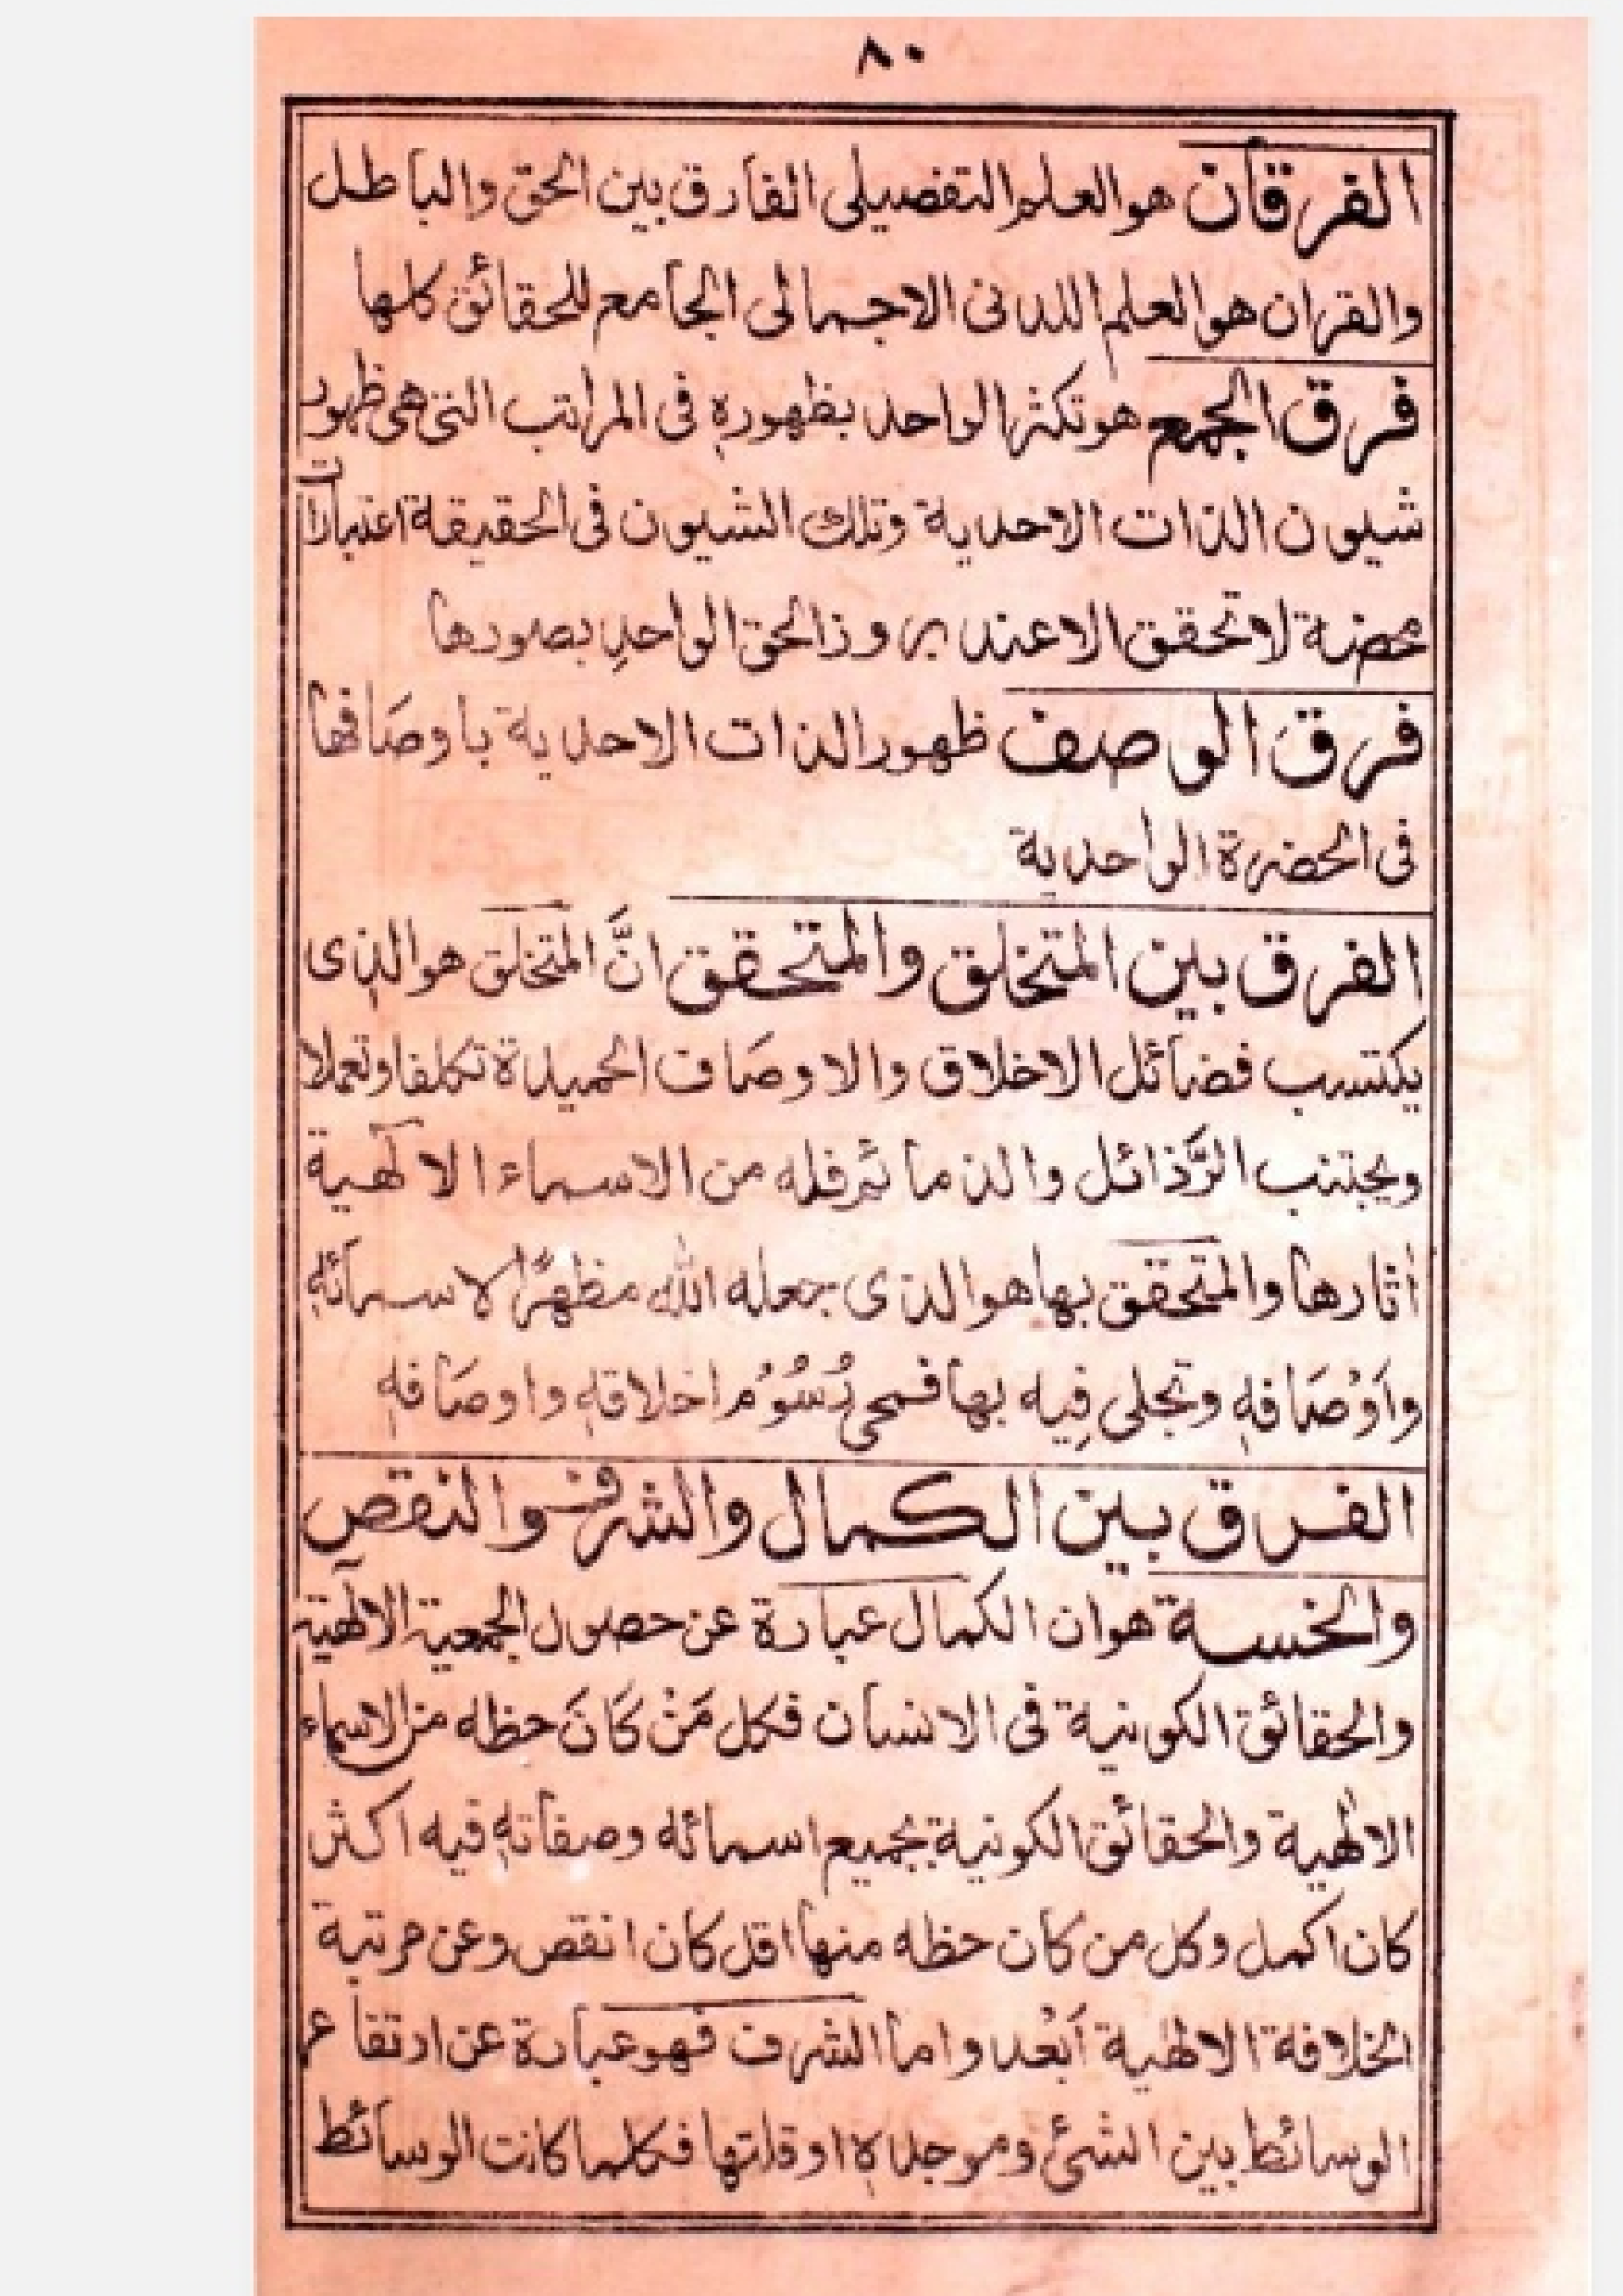 ٨٠
الفرقان هو العلم التفصيلى الفارق بين الحق والباطل
والقران هو العلم اللدنى الاجمالى الجامع للحقائق كلها
فرق الجمع هو تكثر الواحد بظهوره فى المراتب التى هى ظهور
شيون الذات الاحدية وتلك الشيون فى الحقيقة اعتبارات
محضة لا تحقق الا عند بروز الحق الواحد بصورها
فرق الوصف ظهور الذات الاحدية باوصافها
فى الحضرة الواحدية
الفرق بين المتخلق والمتحقق انَّ المتخلق هو الذى
يكتسب فضائل الاخلاق والاوصاف الحميدة تكلفا وتعملا
ويجتنب الرَّذائل والذمائم فله من الاسماء الالٓهية
اثارها والمتحقق بها هو الذى جعله الله مظهرًا لاسمائهٖ
واَوْصَافهٖ وتجلى فِيه بها فمحى رُسُوْمُ اخلاقهٖ واوصَافهٖ
الفرق بين الكمال والشرف والنقص
والخسة هو ان الكمال عبارة عن حصول الجمعية الالٓهية
والحقائق الكونية فى الانسان فكل مَنْ كَانَ حظه من الاسماء
الالٰهية والحقائق الكونية بجميع اسمائه وصفاتهٖ فيه اكثر
كان اكمل وكل من كان حظه منها اقل كان انقص وعن مرتبة
الخلافة الالٰهية اَبْعد واما الشرف فهو عبارة عن ارتفاع
الوسائط بين الشئ وموجدهٖ او قلتها فكلما كانت الوسائط